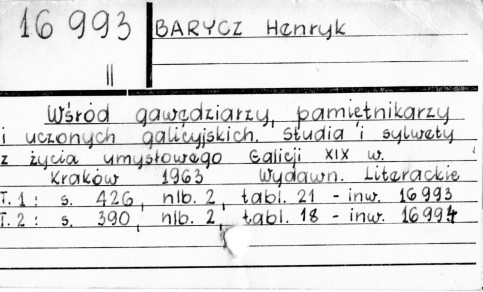 16 993
BARYCZ Henryk
II
Wśród gawędziarzy, pamiętnikarzy
i uczonych galicyjskich. Studia i sylwety
z życia umysłowego Galicji XIX w.
Kraków 1963 Wydawn. Literackie
T. 1 : s. 426, nlb. 2, tabl. 21 - inw. 16993
T. 2 : s. 390, nlb. 2, tabl. 18 - inw. 16994